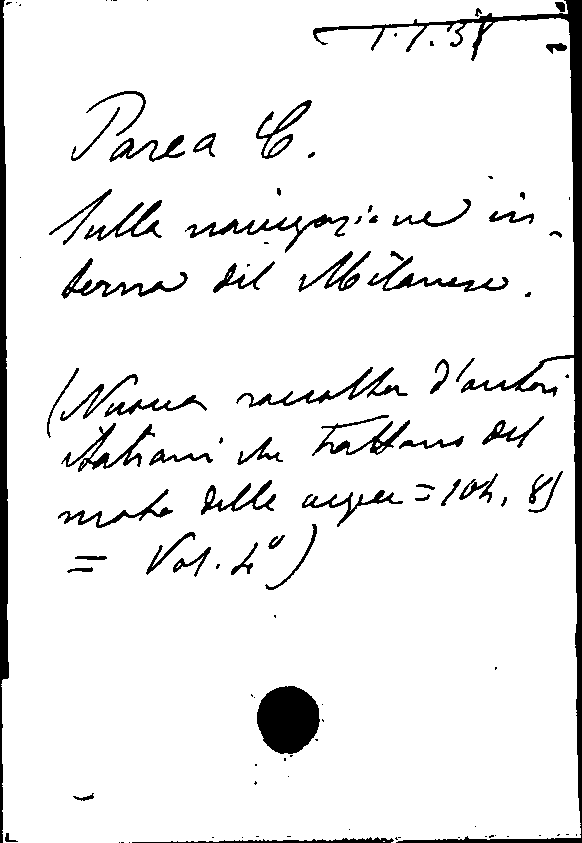 1.7.38
Parea C.
Sulla navigazione in-
terna del Milanese.
(Nuova raccolta d'autori
italiani che trattano del
moto delle acque = 104, 8)
= Vol. 4°)